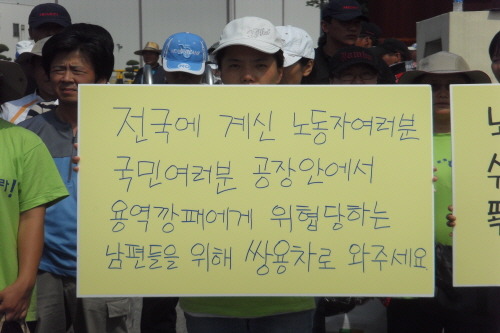 전국에 계신 노동자여러분
국민여러분 공장안에서
용역깡패에게 위협당하는
남편들을 위해 쌍용차로 와주세요
노
수
폭
라!